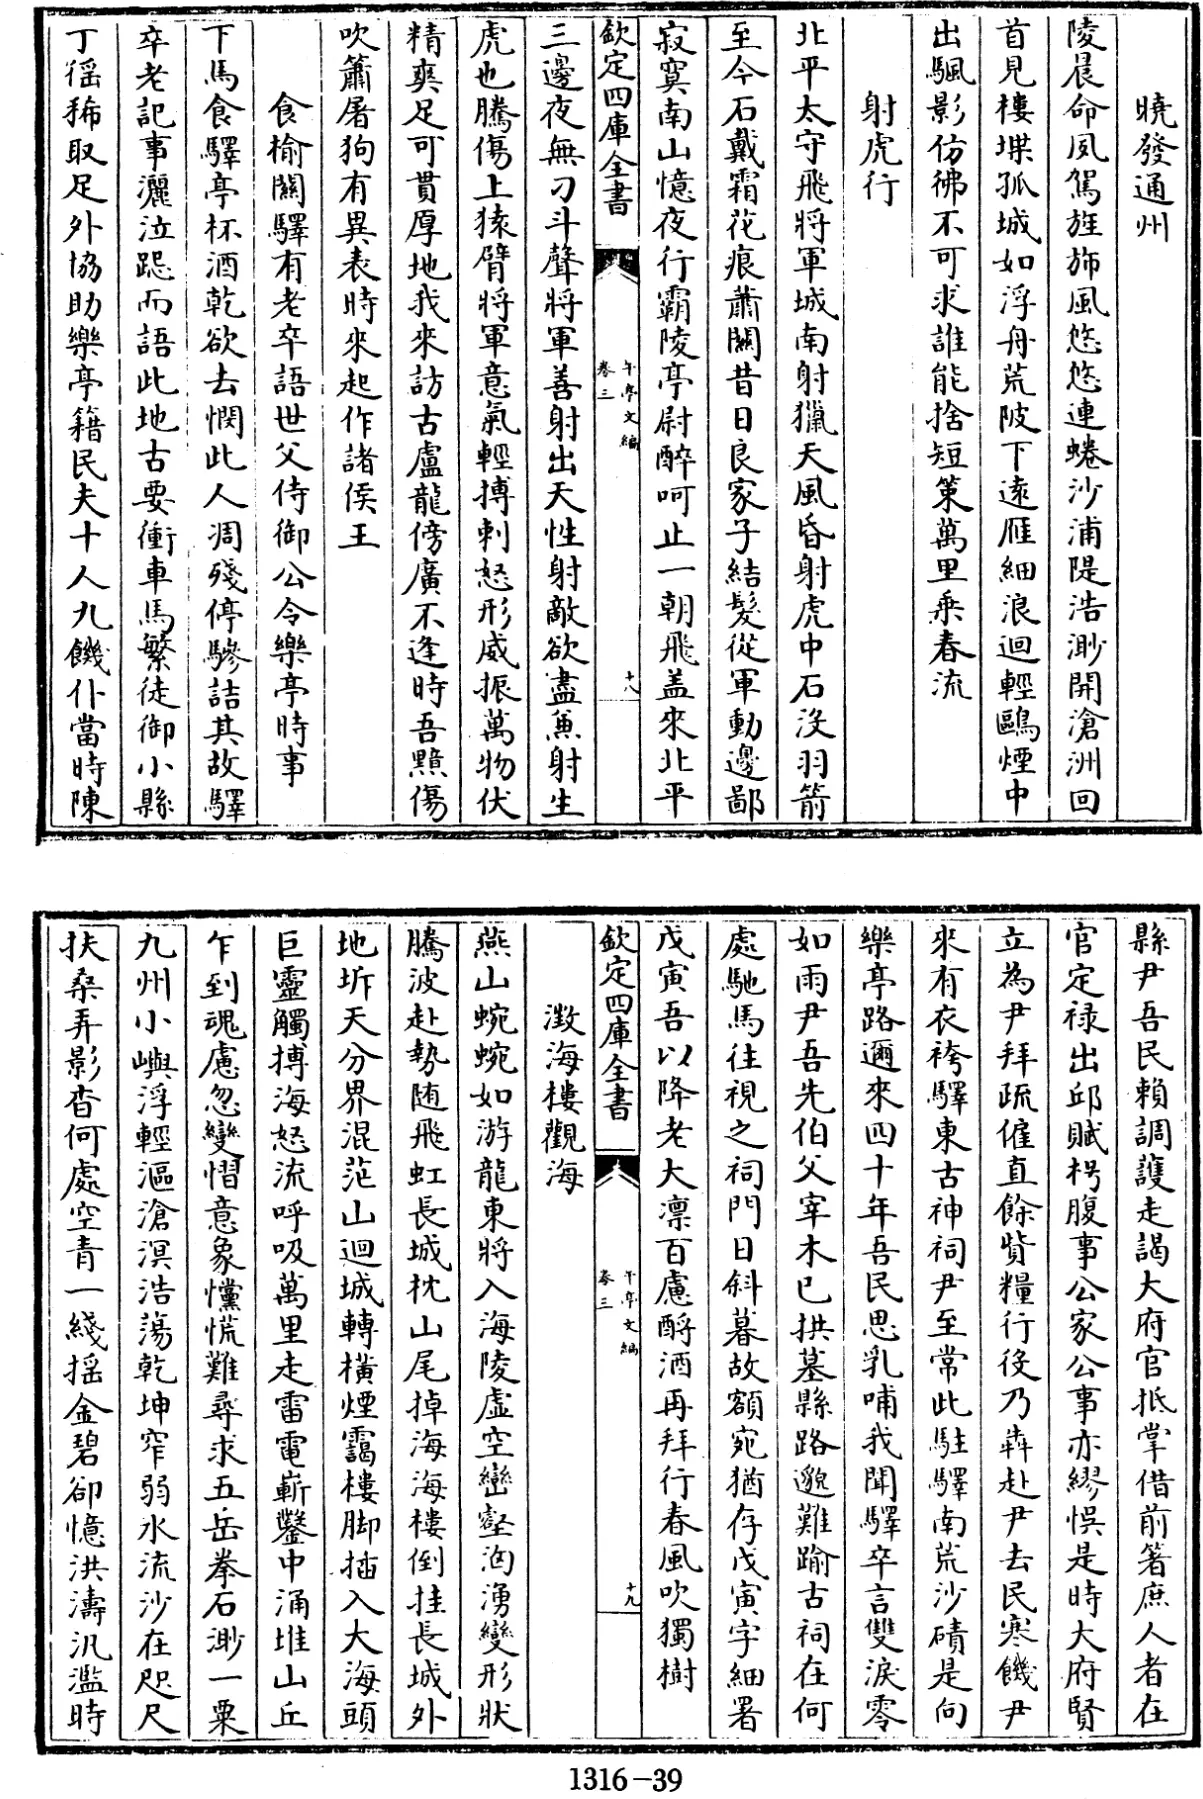 曉發通州
陵晨命夙駕旌斾風悠悠連蜷沙浦隄浩渺開滄洲回
首見樓堞孤城如浮舟荒陂下遠雁細浪迴輕鷗煙中
出颿影仿彿不可求誰能捨短策萬里乗春流
射虎行
北平太守飛將軍城南射獵天風昏射虎中石沒羽箭
至今石戴霜花痕蕭關昔日良家子結髮從軍動邊鄙
寂寞南山憶夜行霸陵亭尉醉呵止一朝飛盖來北平
欽定四庫全書
午亭文編
卷三
十八
三邊夜無刁斗聲將軍善射出天性射敵欲盡兼射生
虎也騰傷上猿臂將軍意氣輕搏刺怒形威振萬物伏
精爽足可貫厚地我來訪古盧龍傍廣不逢時吾黯傷
吹簫屠狗有異表時來起作諸侯王
食榆關驛有老卒語世父侍御公令樂亭時事
下馬食驛亭杯酒乾欲去憫此人凋殘停驂詰其故驛
卒老記事灑泣跽而語此地古要衝車馬繁徒御小縣
丁徭稀取足外協助樂亭籍民夫十人九饑仆當時陳
縣尹吾民賴調護走謁大府官抵掌借前箸庶人者在
官定禄出邱賦枵腹事公家公事亦繆悞是時大府賢
立為尹拜疏僱直餘貲糧行役乃犇赴尹去民寒饑尹
來有衣袴驛東古神祠尹至常此駐驛南荒沙磧是向
樂亭路邇來四十年吾民思乳哺我聞驛卒言雙淚零
如雨尹吾先伯父宰木已拱墓縣路邈難踰古祠在何
處馳馬往視之祠門日斜暮故額宛猶存戊寅字細署
戊寅吾以降老大凛百慮酹酒再拜行春風吹獨樹
欽定四庫全書
午亭文編
卷三
十九
澂海樓觀海
燕山蜿蜿如游龍東將入海陵虛空巒壑洶湧變形狀
騰波赴勢随飛虹長城枕山尾掉海海樓倒挂長城外
地坼天分界混茫山迴城轉橫煙靄樓脚插入大海頭
巨靈觸搏海怒流呼吸萬里走雷電嶄鑿中涌堆山丘
乍到魂慮忽變慴意象戃慌難尋求五岳拳石渺一粟
九州小嶼浮輕漚滄溟浩蕩乾坤窄弱水流沙在咫尺
扶桑弄影杳何處空青一綫揺金碧卻憶洪濤汎濫時
1316-39